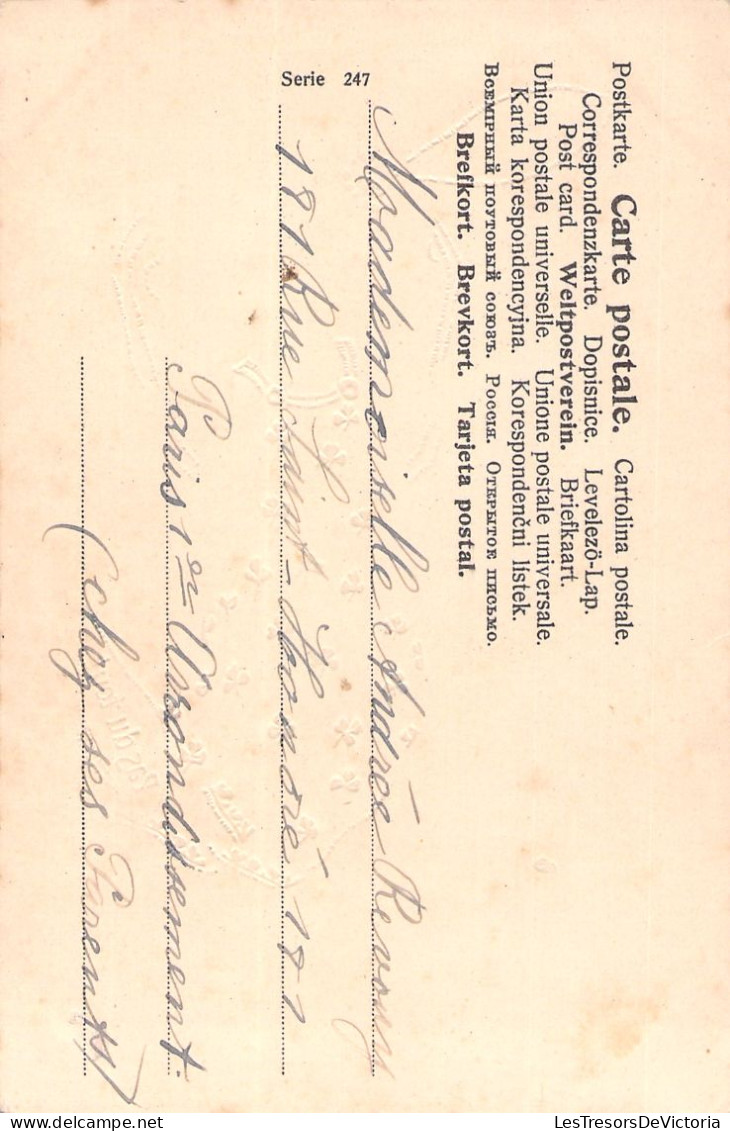 Postkarte. Carte postale. Cartolina postale.
Correspondenzkarte. Dopisnice. Levelező-Lap.
Post card. Weltpostverein. Briefkaart.
Union postale universelle. Unione postale universale.
Karta korespondencyjna. Korespondenční lístek.
Всемірный почтовый союзъ. Россія. Открытое письмо.
Brefkort. Brevkort. Tarjeta postal.
Serie 247
Mademoiselle Andrée
181 Rue Saint-Honoré 181
Paris 1er Arrondissement.
(chez ses Parents)
LesTresorsDeVictoria